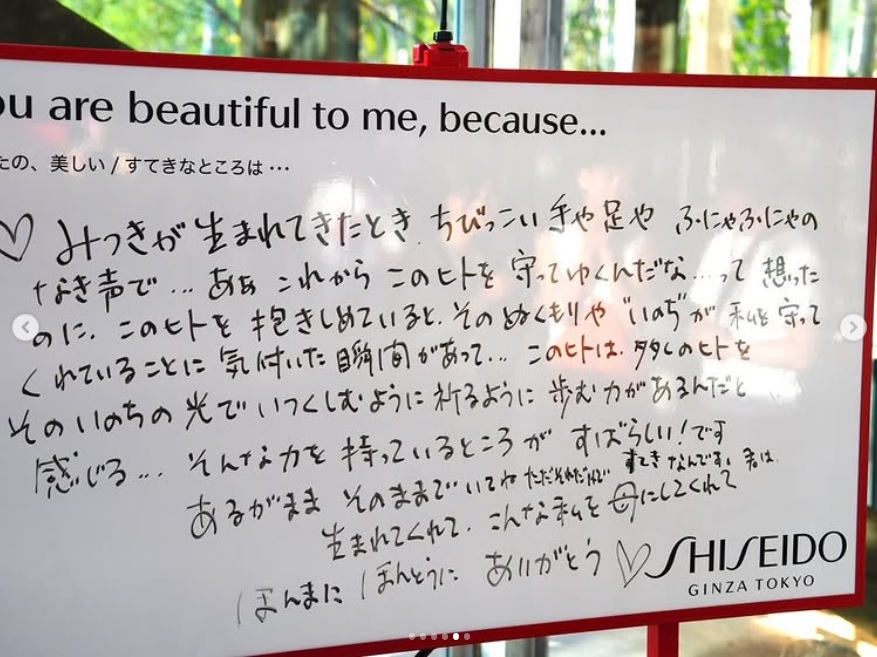 ou are beautiful to me, because...
たの、美しい / すてきなところは…
♡ みつきが 生まれてきたとき ちびっこい 手や足や ふにゃふにゃの
なき声で… あぁ これから このヒトを 守ってゆくんだな…って 想った
のに、このヒトを 抱きしめていると、その ぬくもりや "いのち"が 私を 守って
くれていることに 気付いた 瞬間があって… このヒトは、多くのヒトを
そのいのちの 光で いつくしむように 祈るように 歩む 力があるんだと
感じる… そんな力を 持っているところが すばらしい!です
あるがまま そのままで いてね ただそれだけで すてき なんです。 君は、
生まれてくれて、こんな私を 母にしてくれて
ほんまに ほんとうに ありがとう ♡
SHISEIDO
GINZA TOKYO